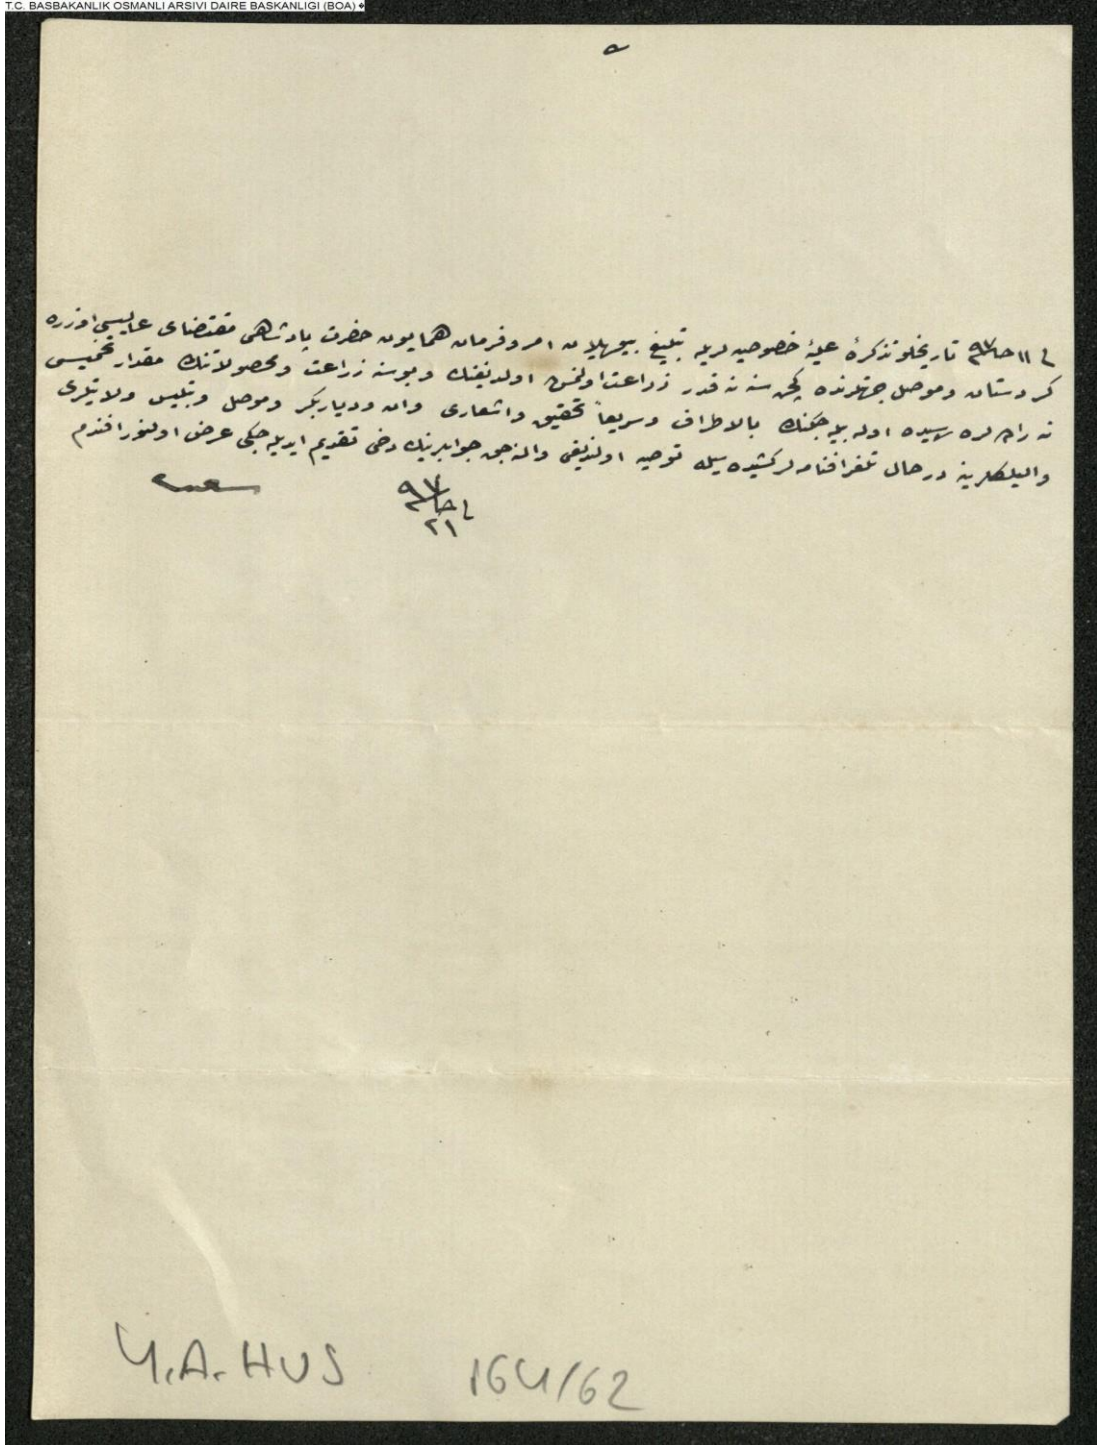 T.C. BASBAKANLIK OSMANLI ARSIVI DAIRE BASKANLIGI (BOA)
فی ١١ حا ٩٧ تاریخلو تذکرهٔ علیهٔ خصوصیه لریله تبلیغ بیوریلان امر و فرمان همایون حضرت پادشاهی مقتضای عالیسی اوزره
کردستان و موصل جهتلرنده کچن سنه نه قدر زراعت اولنمش اولدیغنك و بو سنه زراعت و محصولاتنك مقدار تخمیسی
نه راده لره رسیده اوله بیله جکنك بالاطراف و سریعاً تحقیق و اشعاری وان و دیاربکر و موصل و بتلیس ولایتلری
والیلکلرینه درحال تلغرافنامه لر کشیده سیله توصیه اولندیغی و النه جق جوابلرینك دخی تقدیم ایدیله جکی عرض اولنور افندم
فی حا ٩٧
٢١
سعید
Y.A.HUS 164/62